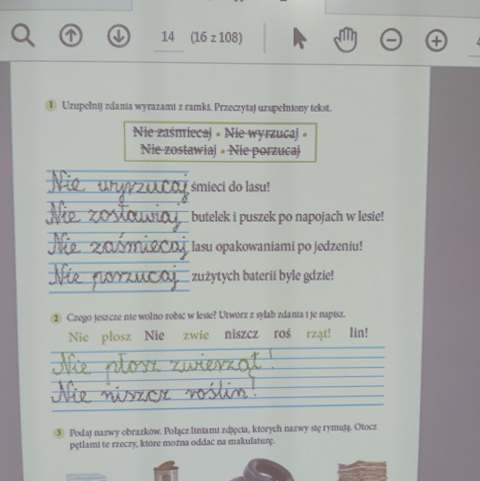 14 (16 z 108)
1 Uzupełnij zdania wyrazami z ramki. Przeczytaj uzupełniony tekst.
Nie zaśmiecaj • Nie wyrzucaj •
Nie zostawiaj • Nie porzucaj
Nie wyrzucaj śmieci do lasu!
Nie zostawiaj butelek i puszek po napojach w lesie!
Nie zaśmiecaj lasu opakowaniami po jedzeniu!
Nie porzucaj zużytych baterii byle gdzie!
2 Czego jeszcze nie wolno robić w lesie? Utwórz z sylab zdania i je napisz.
Nie płosz Nie zwie niszcz roś rząt! lin!
Nie płosz zwierząt!
Nie niszcz roślin!
3 Podaj nazwy obrazków. Połącz liniami zdjęcia, których nazwy się rymują. Otocz
pętlami te rzeczy, które można oddać na makulaturę.